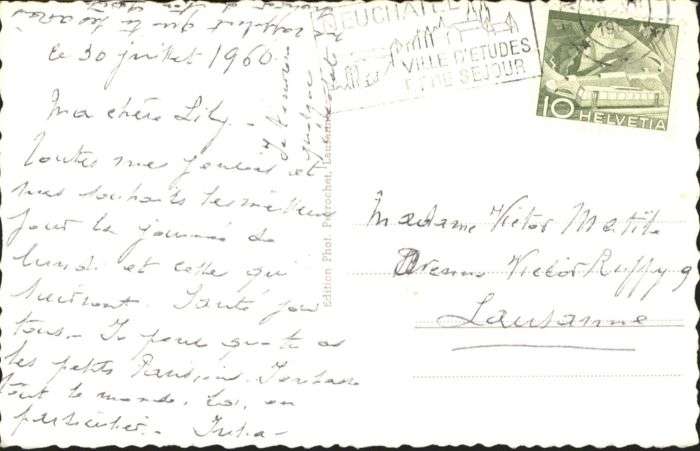 le 30 juillet 1960.
Ma chère Lily. -
Toutes mes pensées et
mes souhaits les meilleurs
pour la journée de
lundi et celles qui
suivront. Santé pour
tous. - Je pense que tu as
les petits Parisiens. J'embrasse
tout le monde, toi, en
particulier. -
NEUCHATEL
VILLE D'ETUDES
ET DE SEJOUR
10
HELVETIA
Edition Phot. Perrochet, Lausanne
Madame Victor
Avenue Victor Ruffy 9
Lausanne